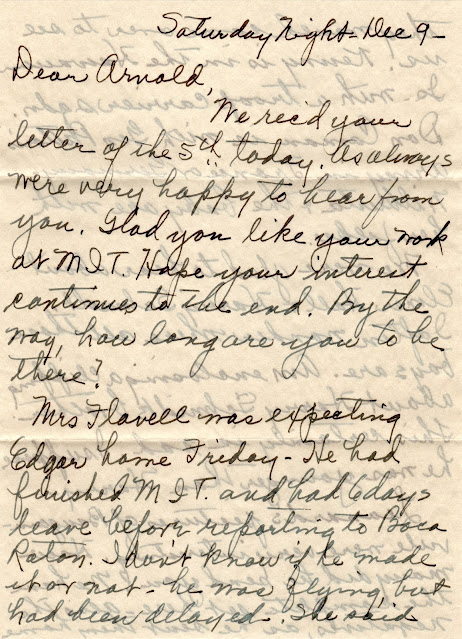 Saturday Night - Dec 9 -
Dear Arnold,
We rec'd your
letter of the 5th today. As always
were very happy to hear from
you. Glad you like your work
at M I T. Hope your interest
continues to the end. By the
way, how long are you to be
there?
Mrs Flavell was expecting
Edgar home Friday - He had
finished M I T. and had 6 days
leave before reporting to Boca
Raton. I don't know if he made
it or not - he was flying, but
had been delayed. She said